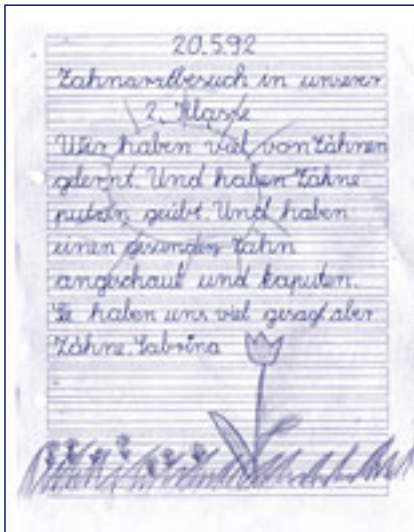 20.5.92
Zahnarztbesuch in unserer
2. Klasse
Wir haben viel von Zähnen
glernt. Und haben Zähne
putzen geübt. Und haben
einen gesunden Zahn
angschaut und kaputen.
Se haben uns viel gesagt aber
Zähne. Sabrina